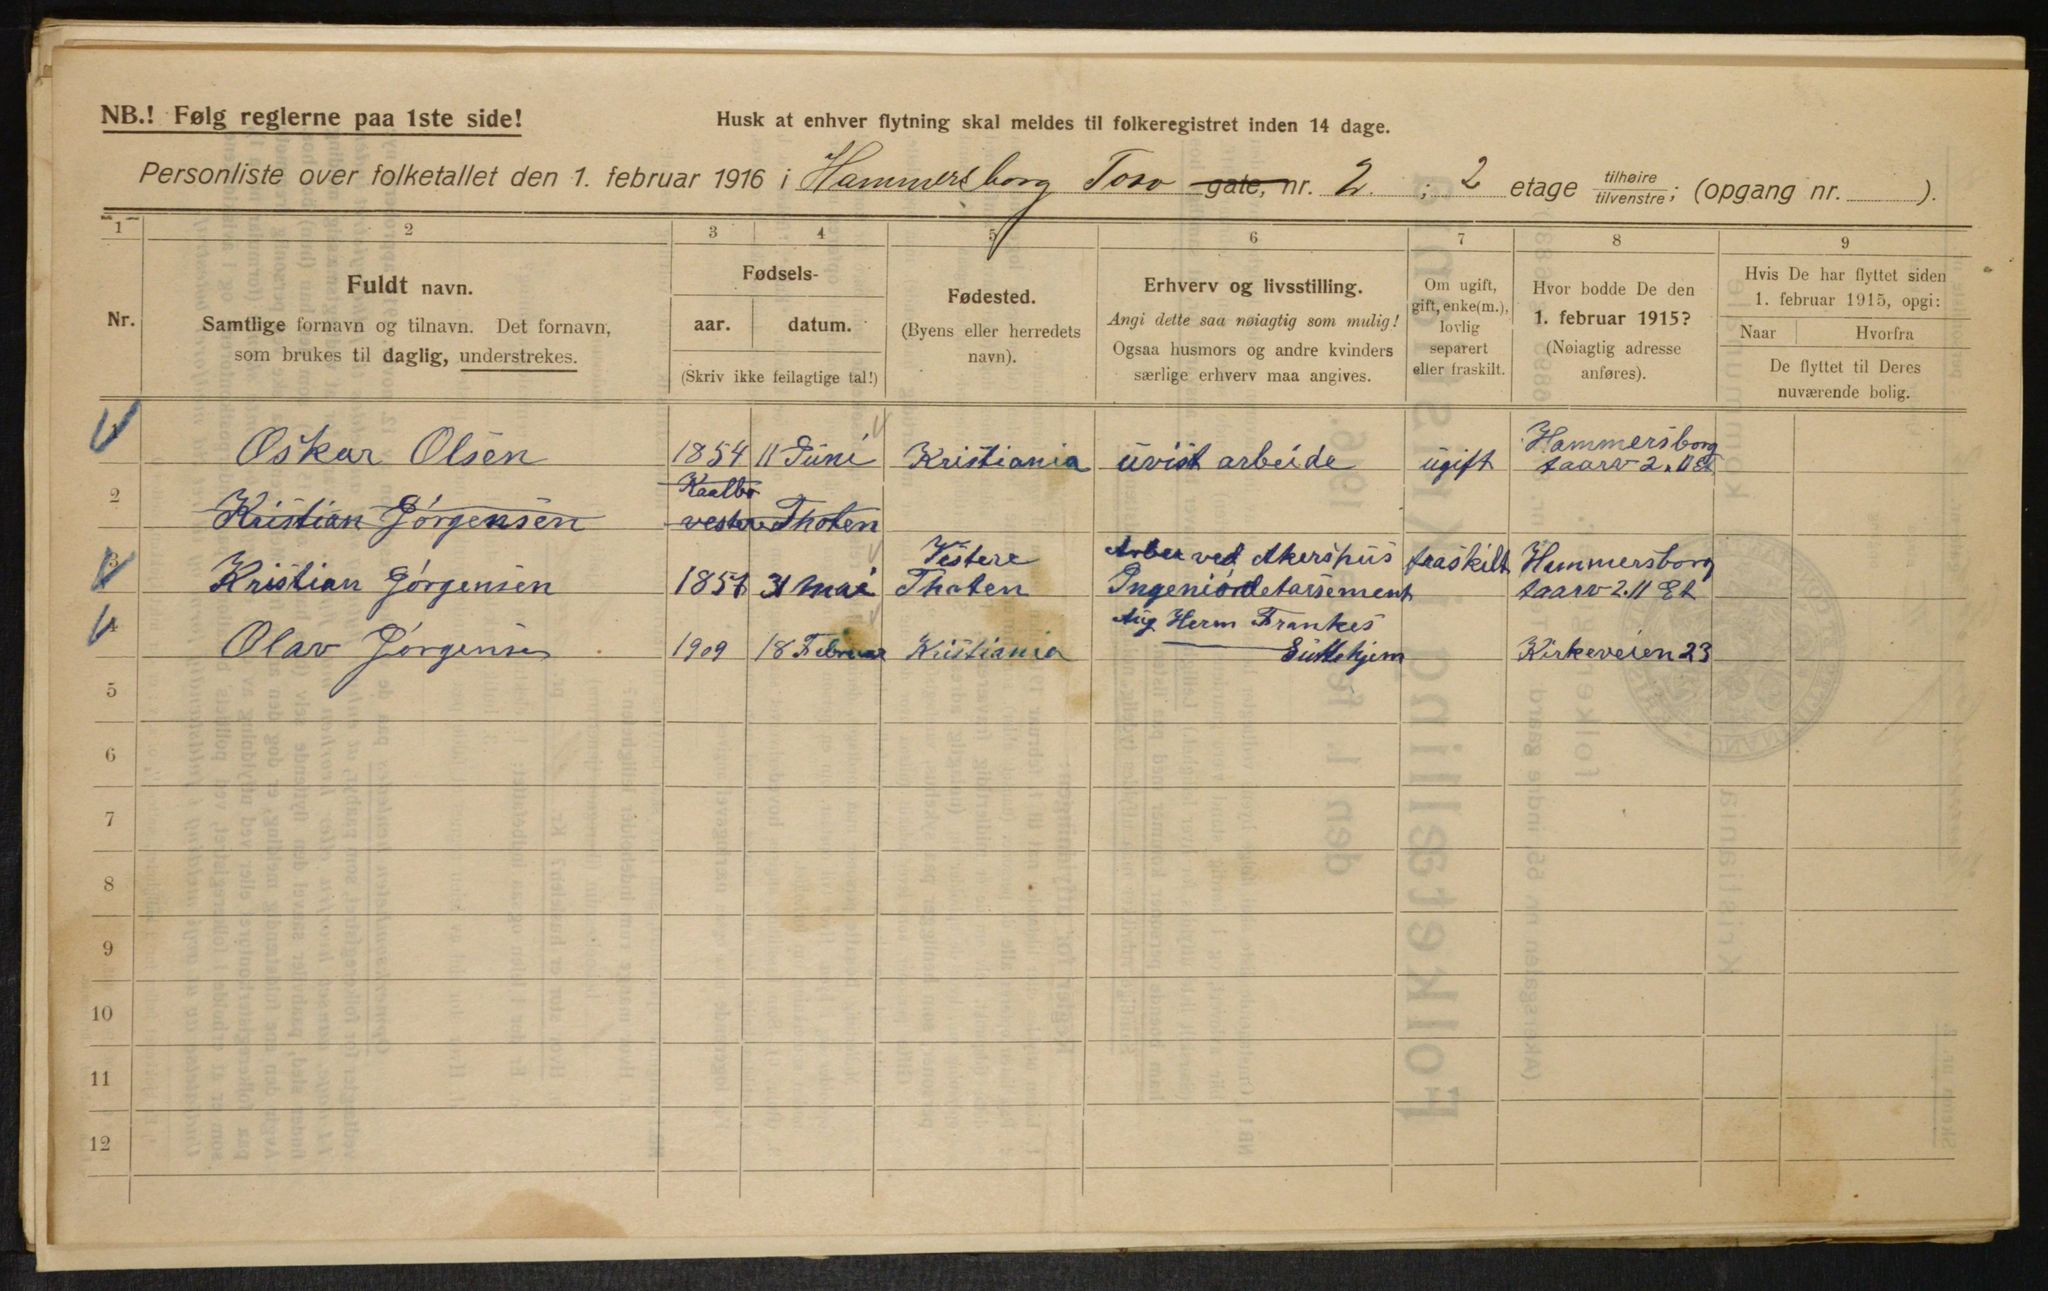 NB.! Følg reglerne paa 1ste side!
Husk at enhver flytning skal meldes til folkeregistret inden 14 dage.
Personliste over folketallet den 1. februar 1916 i Hammersborg Torv gate, nr. 2 ; 2 etage tilhøire/tilvenstre; (opgang nr. ).
1 2 3 4 5 6 7 8 9
Nr.
Fuldt navn.
Samtlige fornavn og tilnavn. Det fornavn,
som brukes til daglig, understrekes.
Fødsels-
aar. datum.
(Skriv ikke feilagtige tal!)
Fødested.
(Byens eller herredets
navn).
Erhverv og livsstilling.
Angi dette saa nøiagtig som mulig!
Ogsaa husmors og andre kvinders
særlige erhverv maa angives.
Om ugift,
gift, enke(m.),
lovlig
separert
eller fraskilt.
Hvor bodde De den
1. februar 1915?
(Nøiagtig adresse
anføres).
Hvis De har flyttet siden
1. februar 1915, opgi:
Naar Hvorfra
De flyttet til Deres
nuværende bolig.
Oskar Olsen 1854 11 Juni Kristiania uvist arbeide ugift Hammersborg
taarv 2. II Et
2 Kristian Jørgensen Kaalbo
vestere Thoten
3 Kristian Jørgensen 1851 31 mai Vestere
Thoten ved Akershus
fraskilt Hammersborg
taarv 2. II Et
4 Olav Jørgensen 1909 18 Februar Kristiania Aug Herm Frankes
Guttehjem Kirkeveien 23
5
6
7
8
9
10
11
12